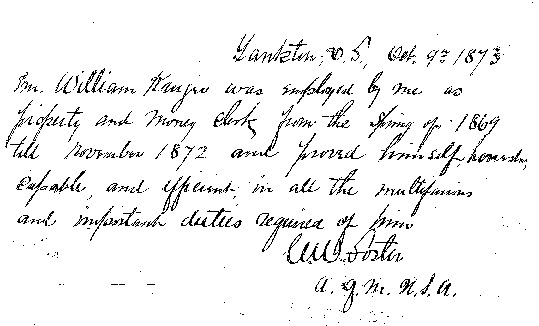 Yankton, D.T., Oct. 9th 1873
Mr. William Kruger was employed by me as
property and money clerk from the Spring of 1869
till November 1872 and proved himself, honest,
capable, and efficient, in all the multifarious
and important duties required of him
C W Foster
A. Q. M. U.S.A.